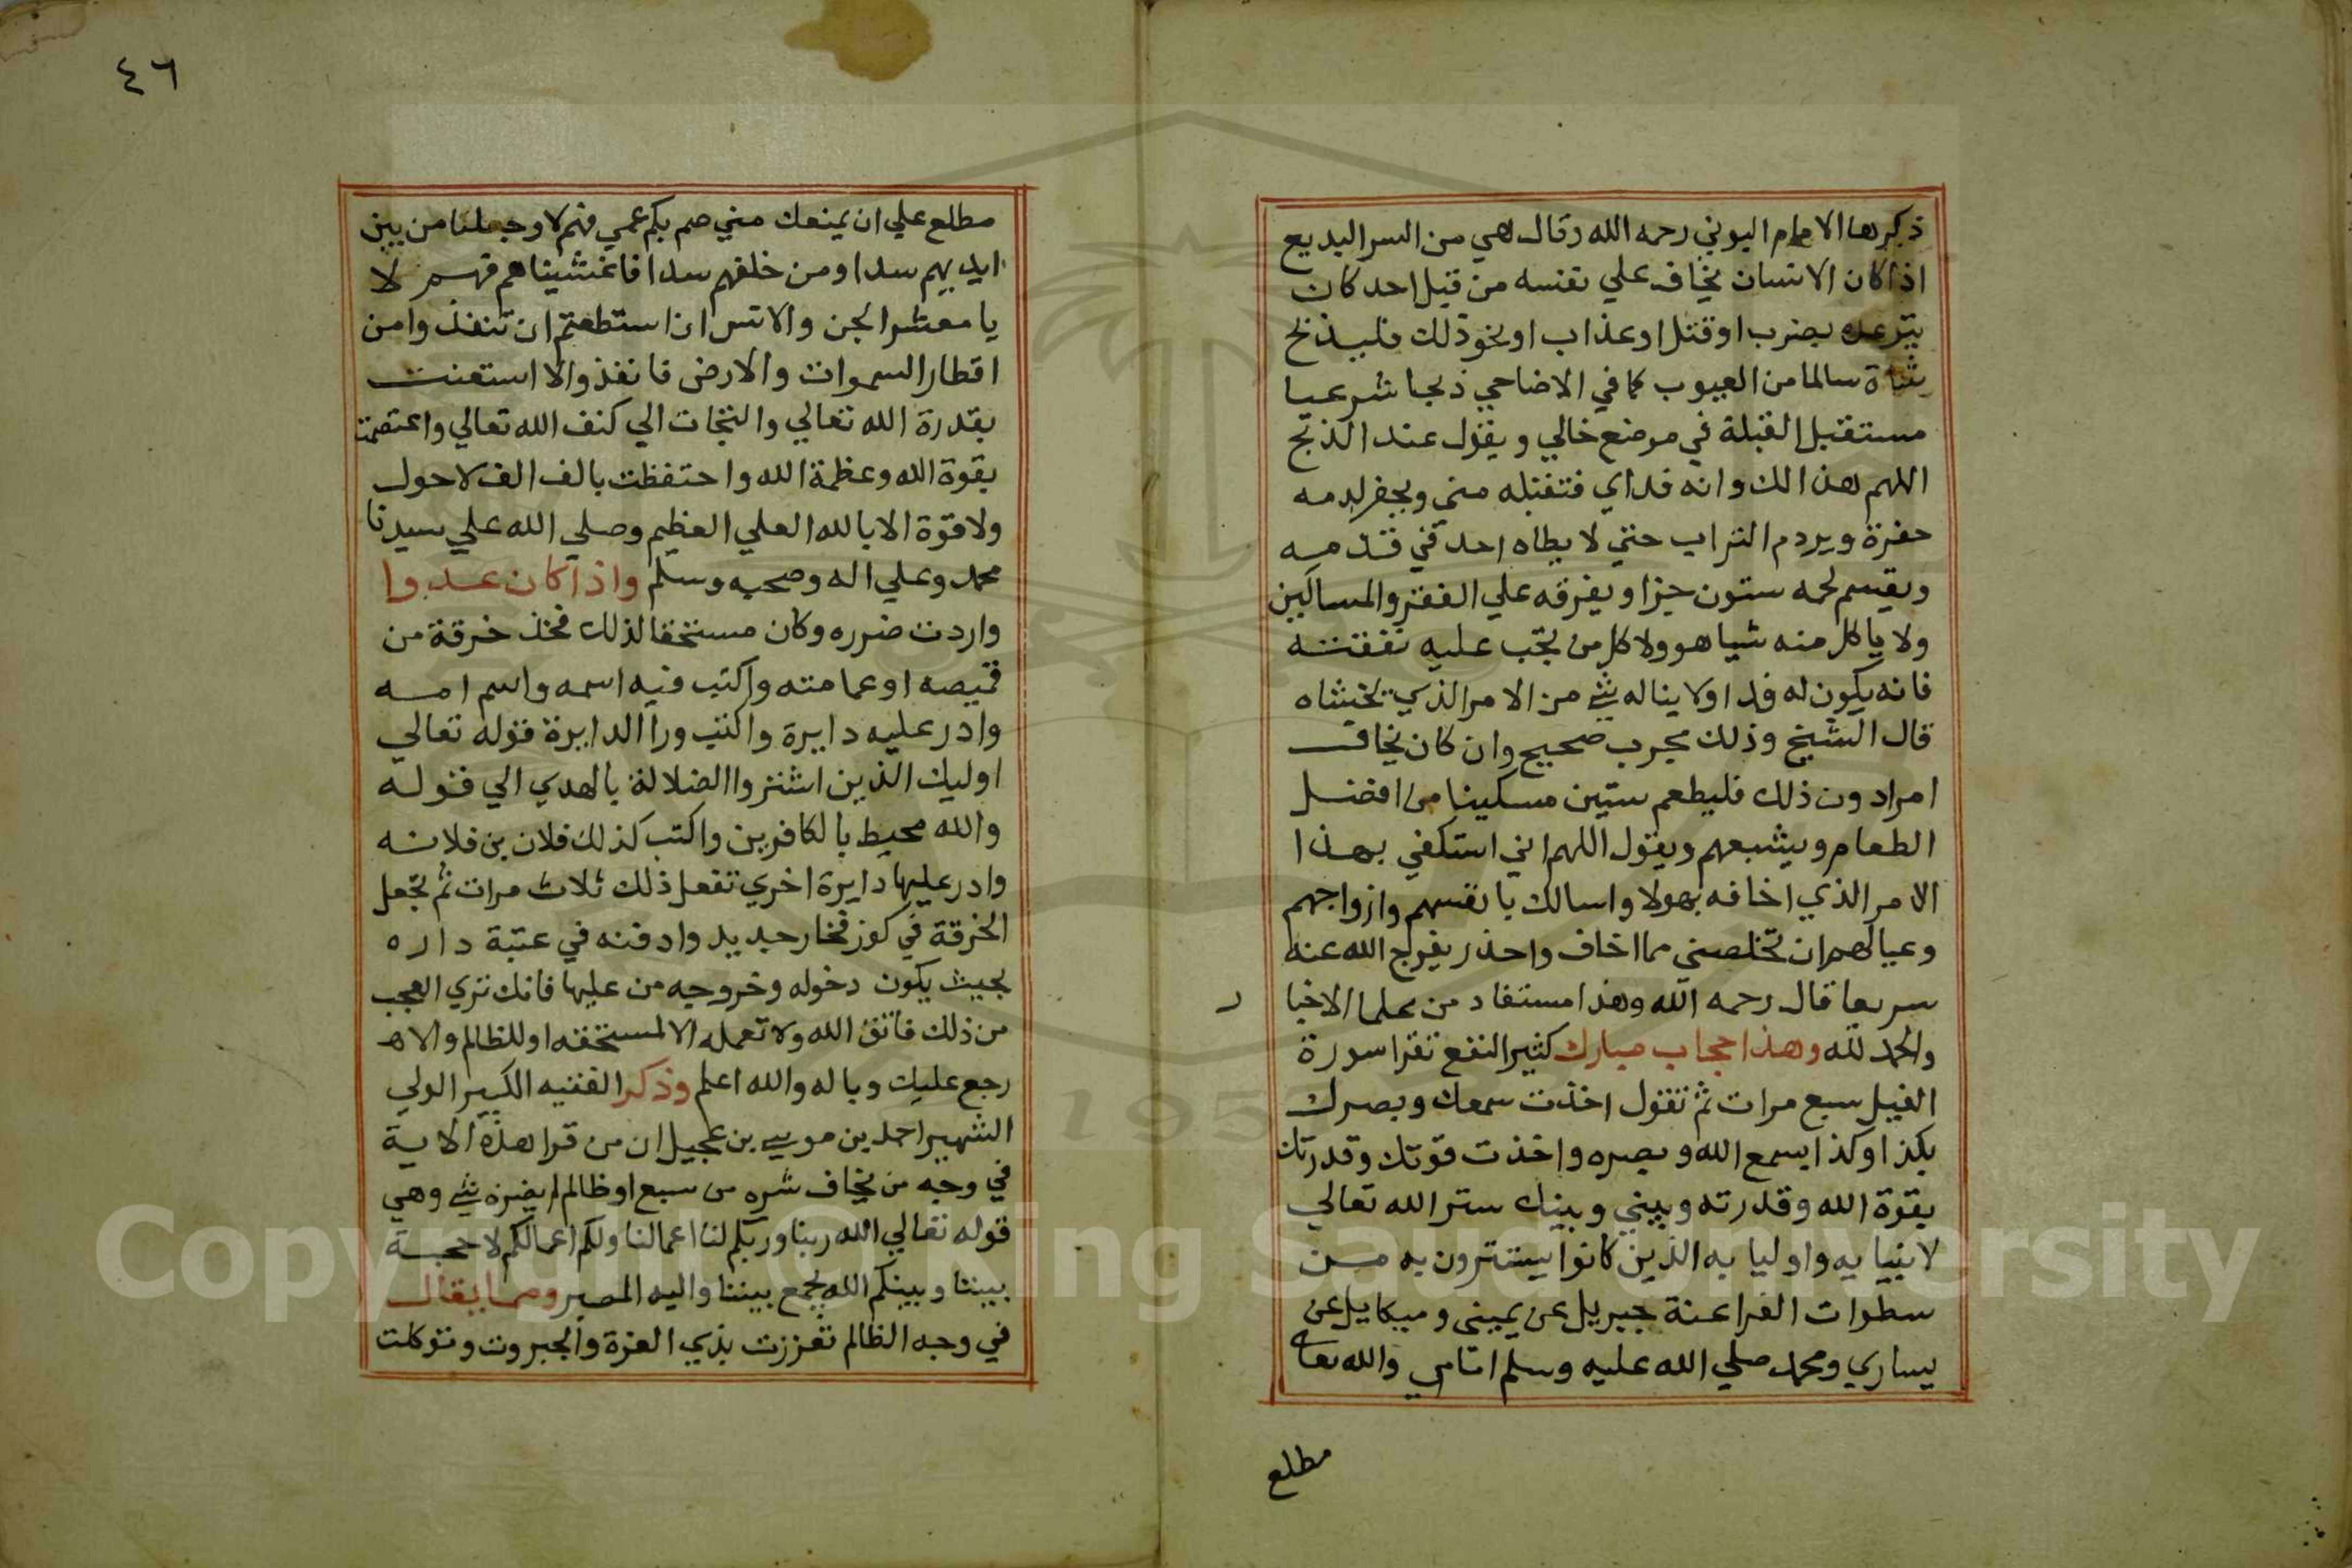 ذكرها الامام البوني رحمه الله وقال هي من السر البديع
اذا كان الانسان يخاف علي نفسه من قبل احد كان
يتوعده بضرب او قتل او عذاب او نحو ذلك فليذبح
شاة سالما من العيوب كما في الاضاحي ذبحا شرعيا
مستقبل القبلة في موضع خالي ويقول عند الذبح
اللهم هذا لك وانه فداي فتقبله مني ويحفر لدمه
حفرة ويردم التراب حتي لا يطاه احد في قدمه
ويقسم لحمه ستون جزا ويفرقه علي الفقرا والمساكين
ولا ياكل منه شيا هو ولا كل من تجب عليه نفقته
فانه يكون له فدا ولا يناله شي من الامر الذي يخشاه
قال الشيخ وذلك مجرب صحيح وان كان يخاف
امرا دون ذلك فليطعم ستين مسكينا من افضل
الطعام ويشبعهم ويقول اللهم اني استكفي بهذا
الامر الذي اخافه بهولا واسالك بانفسهم وازواجهم
وعيالهم ان تخلصني مما اخاف واحذر يفرج الله عنه
سريعا قال رحمه الله وهذا مستفاد من علما الاخيا
ر
والحمد لله وهذا حجاب مبارك كثير النفع تقرا سورة
الفيل سبع مرات ثم تقول اخذت سمعك وبصرك
بكذا وكذا بسمع الله وبصره واخذت قوتك وقدرتك
بقوة الله وقدرته وبيني وبينك ستر الله تعالي
لانبيايه واوليايه الذين كانوا يستترون به من
سطوات الفراعنة جبريل عن يميني وميكايل عن
يساري ومحمد صلي الله عليه وسلم امامي والله تعا
مطلع
٤٦
مطلع علي ان يمنعك مني صم بكم عمي فهم لا وجعلنا من بين
ايديهم سدا ومن خلفهم سدا فاغشيناهم فهم لا
يا معشر الجن والانس ان استطعتم ان تنفذوا من
اقطار السموات والارض فانفذوا الا استعنت
بقدرة الله تعالي والتجات الي كنف الله تعالي واعتصمت
بقوة الله وعظمة الله واحتفظت بالف الف لاحول
ولا قوة الا بالله العلي العظيم وصلي الله علي سيدنا
محمد وعلي اله وصحبه وسلم واذا كان عدوا
واردت ضرره وكان مستحقا لذلك فخذ خرقة من
قميصه او عمامته واكتب فيه اسمه واسم امه
وادر عليه دايرة واكتب ورا الدايرة قوله تعالي
اوليك الذين اشتروا الضلالة بالهدي الي قوله
والله محيط بالكافرين واكتب كذلك فلان بن فلانه
وادر عليها دايرة اخري تفعل ذلك ثلاث مرات ثم تجعل
الخرقة في كوز فخار جديد وادفنه في عتبة داره
بحيث يكون دخوله وخروجه من عليها فانك تري العجب
من ذلك فاتق الله ولا تعمله الا لمستحقه او للظالم والا
رجع عليك وباله والله اعلم وذكر الفقيه الكبير الولي
الشهير احمد بن موسي بن عجيل ان من قرا هذه الاية
في وجه من يخاف شره من سبع او ظالم لم يضره شي وهي
قوله تعالي الله ربنا وربكم لنا اعمالنا ولكم اعمالكم لا حجة
بيننا وبينكم الله يجمع بيننا واليه المصير ومما يقال
في وجه الظالم تعززت بذي العزة والجبروت وتوكلت
Copyright © King Saud University
195